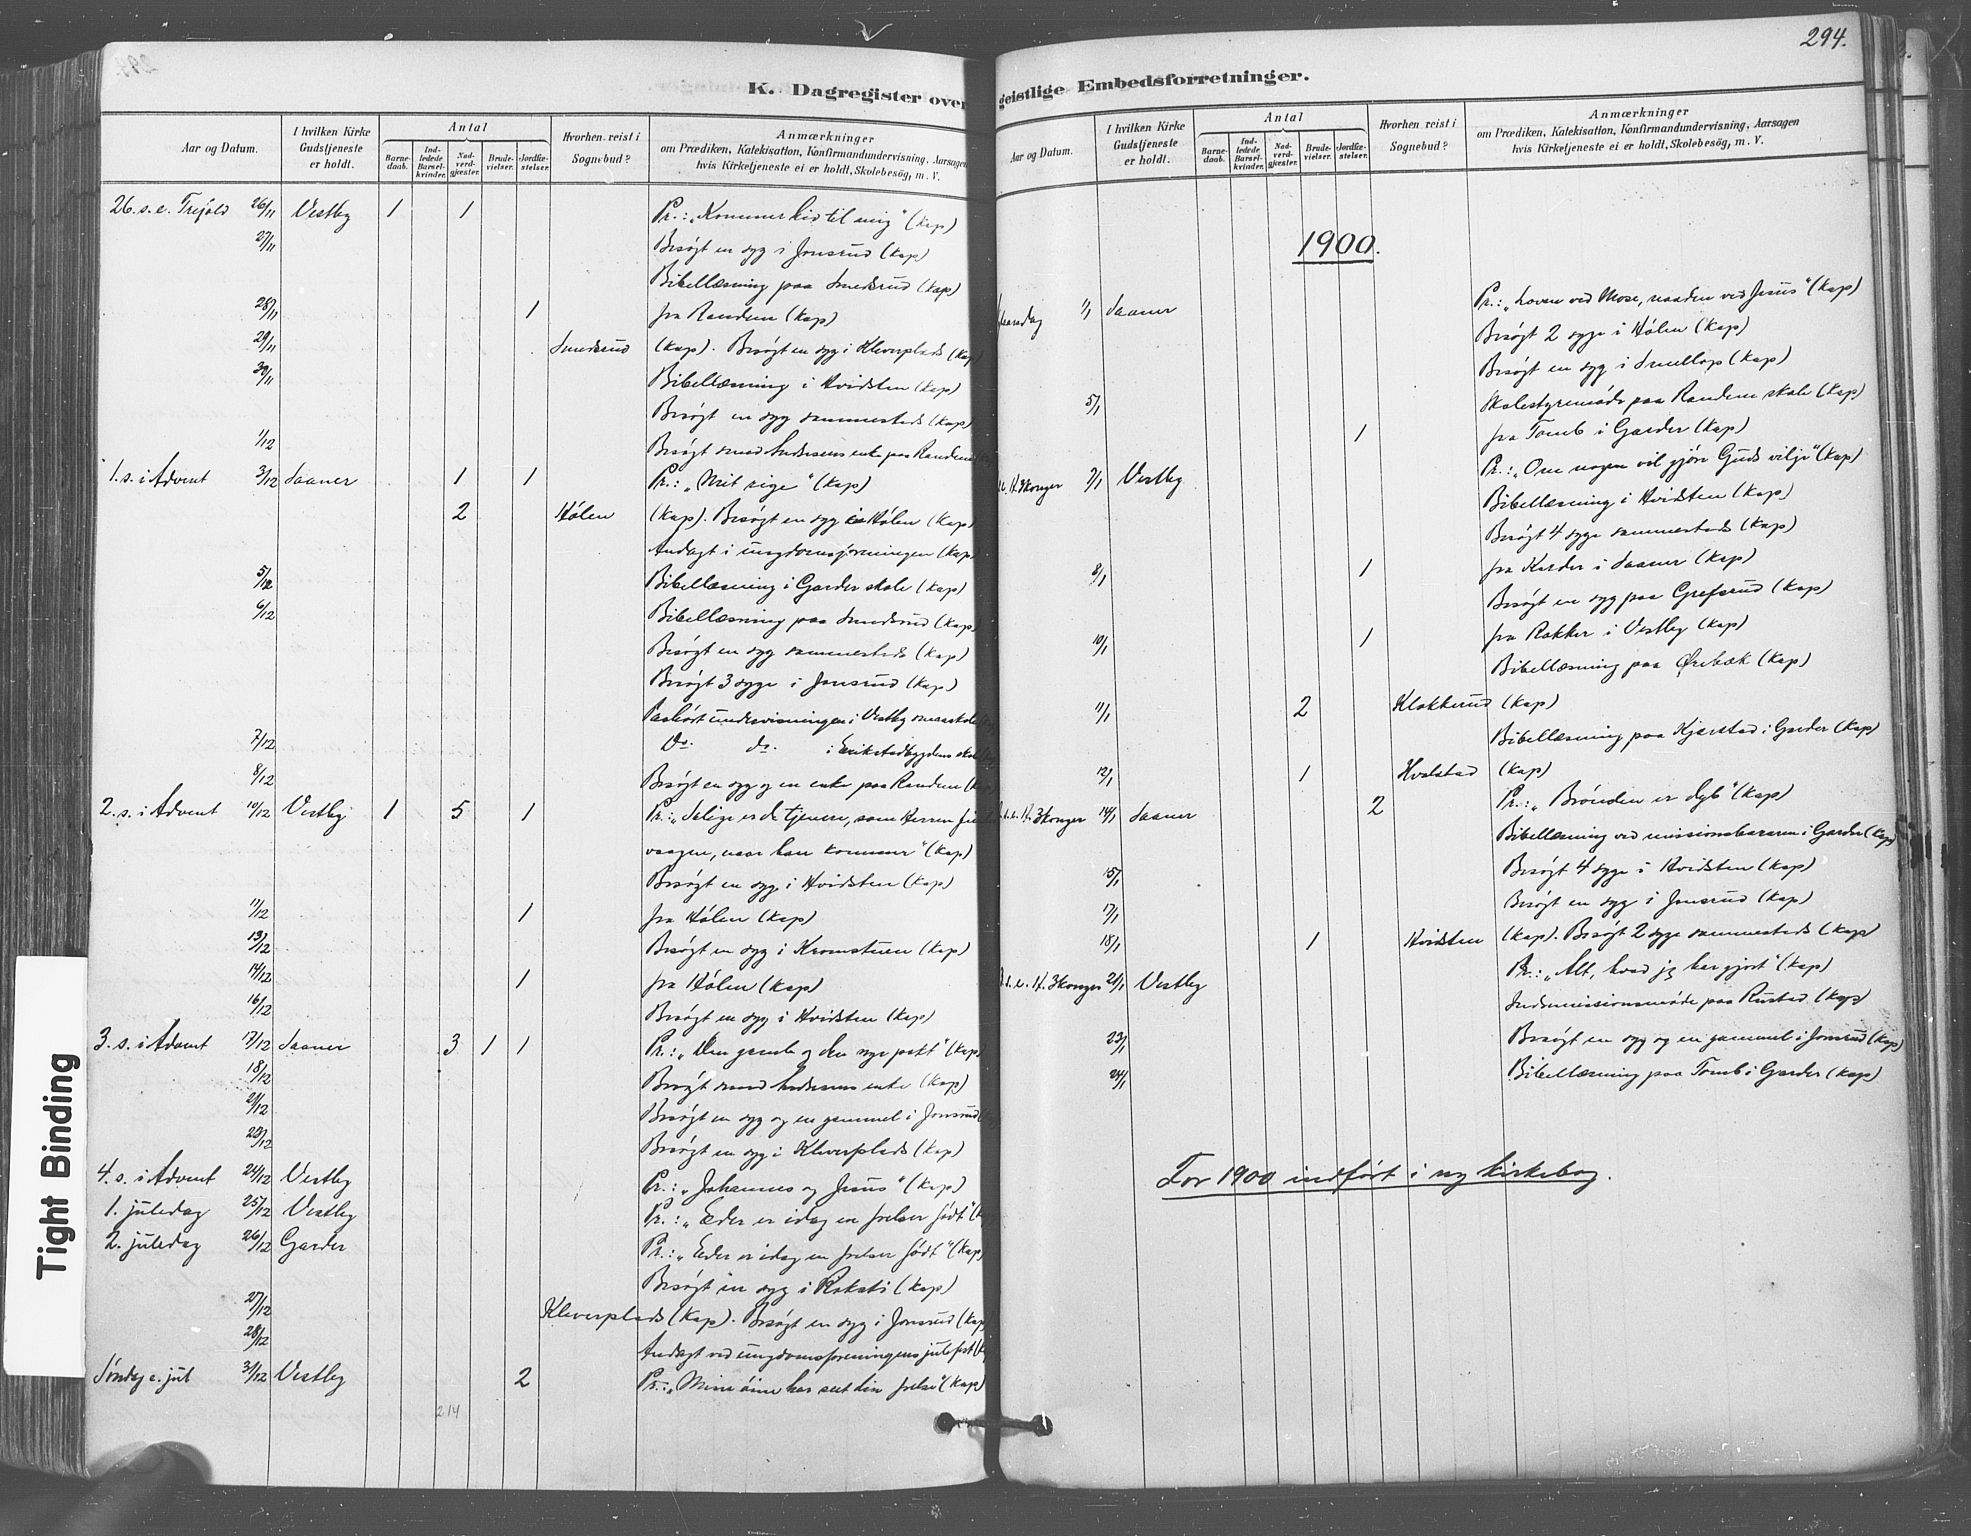 294.
K. Dagregister over geistlige Embedsforretninger.
Aar og Datum. I hvilken Kirke Gudstjeneste er holdt. Antal Barnedaab. Indledede Barselkvinder. Nadverdgjester. Brudevielser. Jordfæstelser. Hvorhen reist i Sognebud? Anmærkninger om Prædiken, Katekisation, Konfirmandundervisning, Aarsagen hvis Kirketjeneste ei er holdt, Skolebesög, m. V.
26. s. e. Trefold 26/11 Vestby 1 1 Pr.: „Kommer hid til mig" (Kap)
27/11 Besøgt en syg i Jonsrud (Kap)
Bibellæsning paa Smedsrud (Kap)
28/11 1 fra Randem (Kap)
29/11 Smedsrud (Kap). Besøgt en syg i Kleverplads (Kap)
30/11 Bibellæsning i Hvidsten (Kap)
Besøgt en syg sammesteds (Kap)
1/12 Besøgt smed Andersens enke paa Randem
1. s. i Advent 3/12 Saaner 1 1 Pr.: „Mit rige" (Kap)
2 Hølen (Kap). Besøgt en syg i Hølen (Kap)
Andagt i ungdomsforeningen (Kap)
5/12 Bibellæsning i Garder skole (Kap)
6/12 Bibellæsning paa Smedsrud (Kap)
Besøgt en syg sammesteds (Kap)
Besøgt 3 syge i Jonsrud (Kap)
Paahørt undervisningen i Vestby smaaskole
7/12 Do. do. i Erikstadbygdens skole
8/12 Besøgt en syg og en enke paa Randem (Kap)
2. s. i Advent 10/12 Vestby 1 5 1 Pr.: „Salige er de tjenere, som Herren finder
vaagne, naar han kommer" (Kap)
Besøgt en syg i Hvidsten (Kap)
11/12 1 fra Hølen (Kap)
13/12 Besøgt en syg i Kromstuen (Kap)
14/12 1 fra Hølen (Kap)
16/12 Besøgt en syg i Hvidsten (Kap)
3. s. i Advent 17/12 Saaner 3 1 1 Pr.: „Den gamle og den nye pakt" (Kap)
18/12 Besøgt smed Andersens enke (Kap)
21/12 Besøgt en syg og en gammel i Jonsrud
23/12 Besøgt en syg i Kleverplads (Kap)
4. s. i Advent 24/12 Vestby Pr.: „Johannes og Jesus" (Kap)
1. juledag 25/12 Vestby Pr.: „Eder er idag en frelser født"
2. juledag 26/12 Garder Pr.: „Eder er idag en frelser født" (Kap)
Besøgt en syg i (Kap)
27/12 Kleverplads (Kap). Besøgt en syg i Jonsrud (Kap)
28/12 Andagt ved ungdomsforeningens julefest
Søndag e. jul 31/12 Vestby 2 Pr.: „Mine øine har seet din frelse" (Kap)
214
Aar og Datum. I hvilken Kirke Gudstjeneste er holdt. Antal Barnedaab. Indledede Barselkvinder. Nadverdgjester. Brudevielser. Jordfæstelser. Hvorhen reist i Sognebud? Anmærkninger om Prædiken, Katekisation, Konfirmandundervisning, Aarsagen hvis Kirketjeneste ei er holdt, Skolebesög, m. V.
1900.
1/1 Saaner Pr.: „Loven ved Mose, naaden ved Jesus" (Kap)
Besøgt 2 syge i Hølen (Kap)
Besøgt en syg i Smellop (Kap)
5/1 Skolestyremøde paa Randem skole (Kap)
1 fra Tomb i Garder (Kap)
H. 3konger 7/1 Vestby Pr.: „Om nogen vil gjøre Guds vilje" (Kap)
Bibellæsning i Hvidsten (Kap)
Besøgt 4 syge sammesteds (Kap)
8/1 1 fra Korder i Saaner (Kap)
Besøgt en syg paa Grefsrud (Kap)
10/1 1 fra Rakker i Vestby (Kap)
Bibellæsning paa Ørebæk (Kap)
11/1 2 Klokkerud (Kap)
Bibellæsning paa Kjærstad i Garder (Kap)
12/1 1 Hvalstad (Kap)
s. e. H. 3konger 14/1 Saaner 2 Pr.: „Brønden er dyb" (Kap)
Bibellæsning ved missionsbasaren i Garder (Kap)
15/1 Besøgt 4 syge i Hvidsten (Kap)
17/1 Besøgt en syg i Jonsrud (Kap)
18/1 1 Hvidsten (Kap). Besøgt 2 syge sammesteds (Kap)
s. e. H. 3konger 21/1 Vestby Pr.: „Alt, hvad jeg har gjort" (Kap)
Indremissionsmøde paa Rustad (Kap)
23/1 Besøgt en syg og en gammel i Jonsrud (Kap)
24/1 Bibellæsning paa Tomb i Garder (Kap)
For 1900 indført i ny kirkebog.
Tight Binding